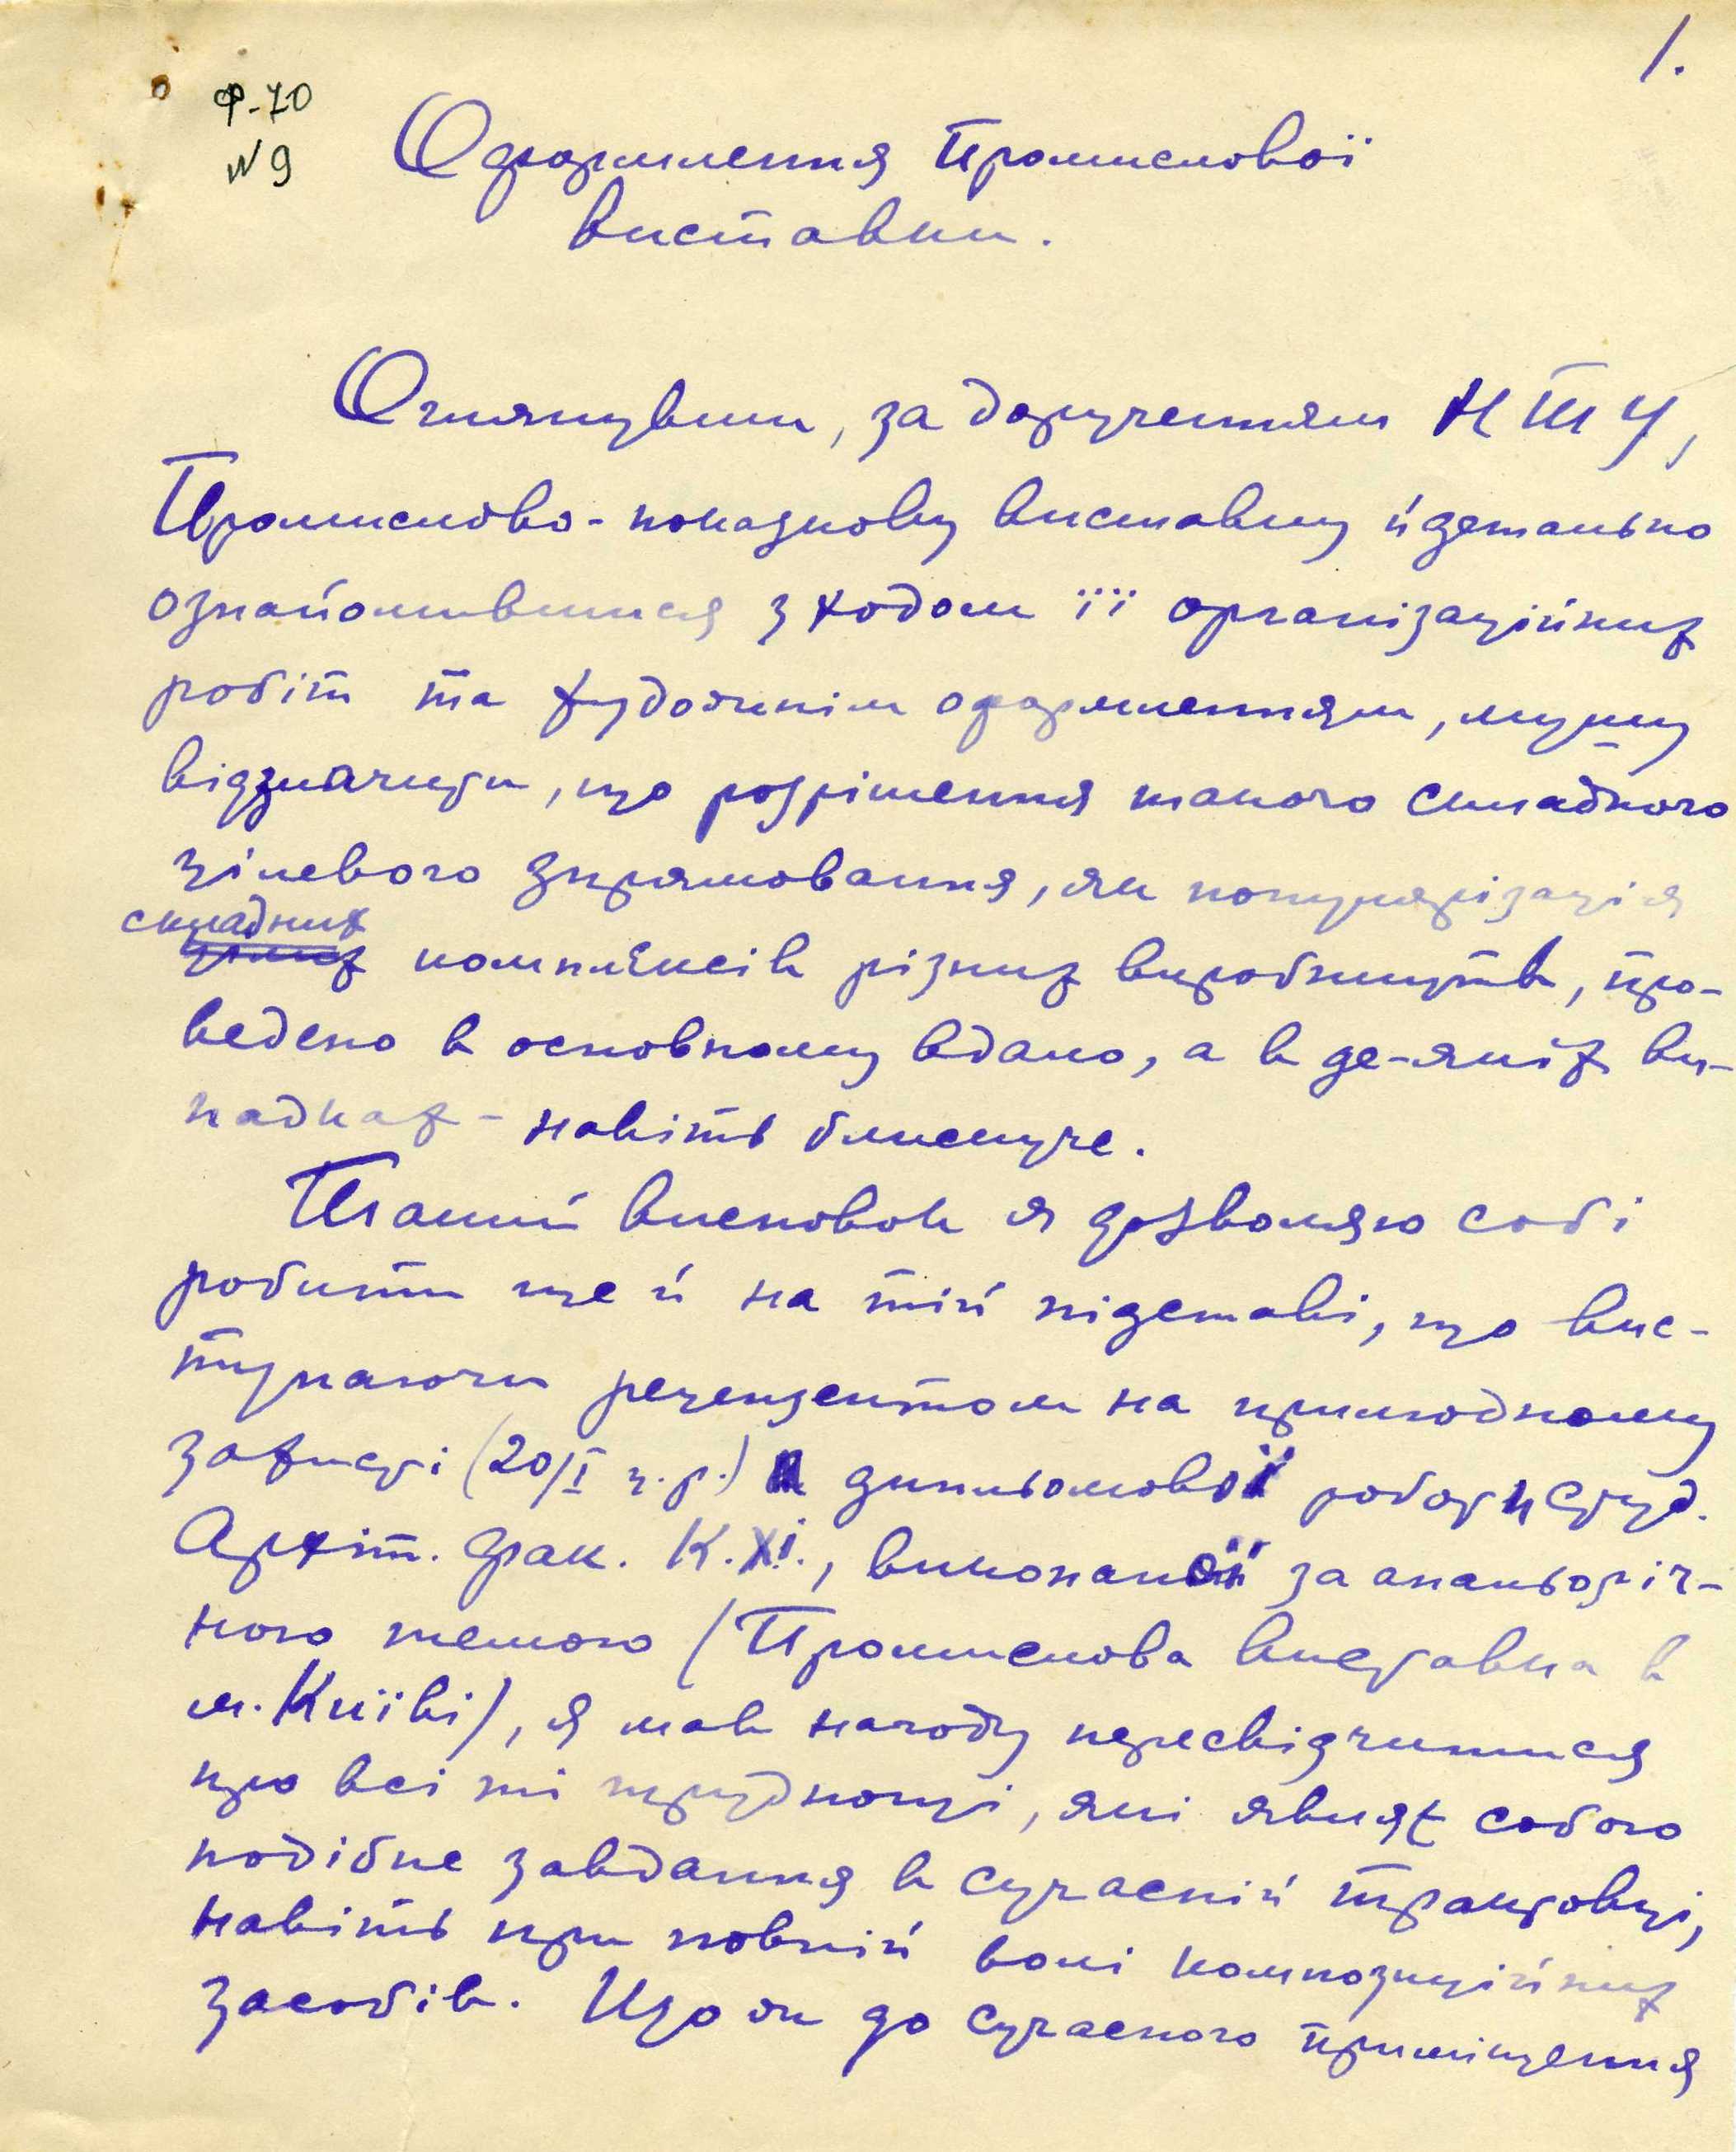 1.
Ф-70
№ 9
Оформлення Промислової
виставки.
Оглянувши, за дорученням НТУ,
Промислово-показкову виставку й детально
ознайомившися з ходом її організаційних
робіт та художнім оформленням, мушу
відзначити, що розрішення такого складного
цілевого зпрямовання, як популярізація
складних
комплексів різних виробництв, про-
ведено в основному вдало, а в де-яких ви-
падках - навіть блискуче.
Такий висновок я дозволяю собі
робити ще й на тій підставі, що вис-
тупаючи рецензентом на прилюдному
захисті (20/I ц.р.) дипломової роботи студ.
Архіт. фак. К.ХІ., виконаної за аналогіч-
ною темою (Промислова виставка в
м. Київі), я мав нагоду пересвідчитися
про всі ті труднощі, які являє собою
подібне завдання в сучасній трактовці,
навіть при повній волі композиційних
засобів. Що ж до сучасного приміщення